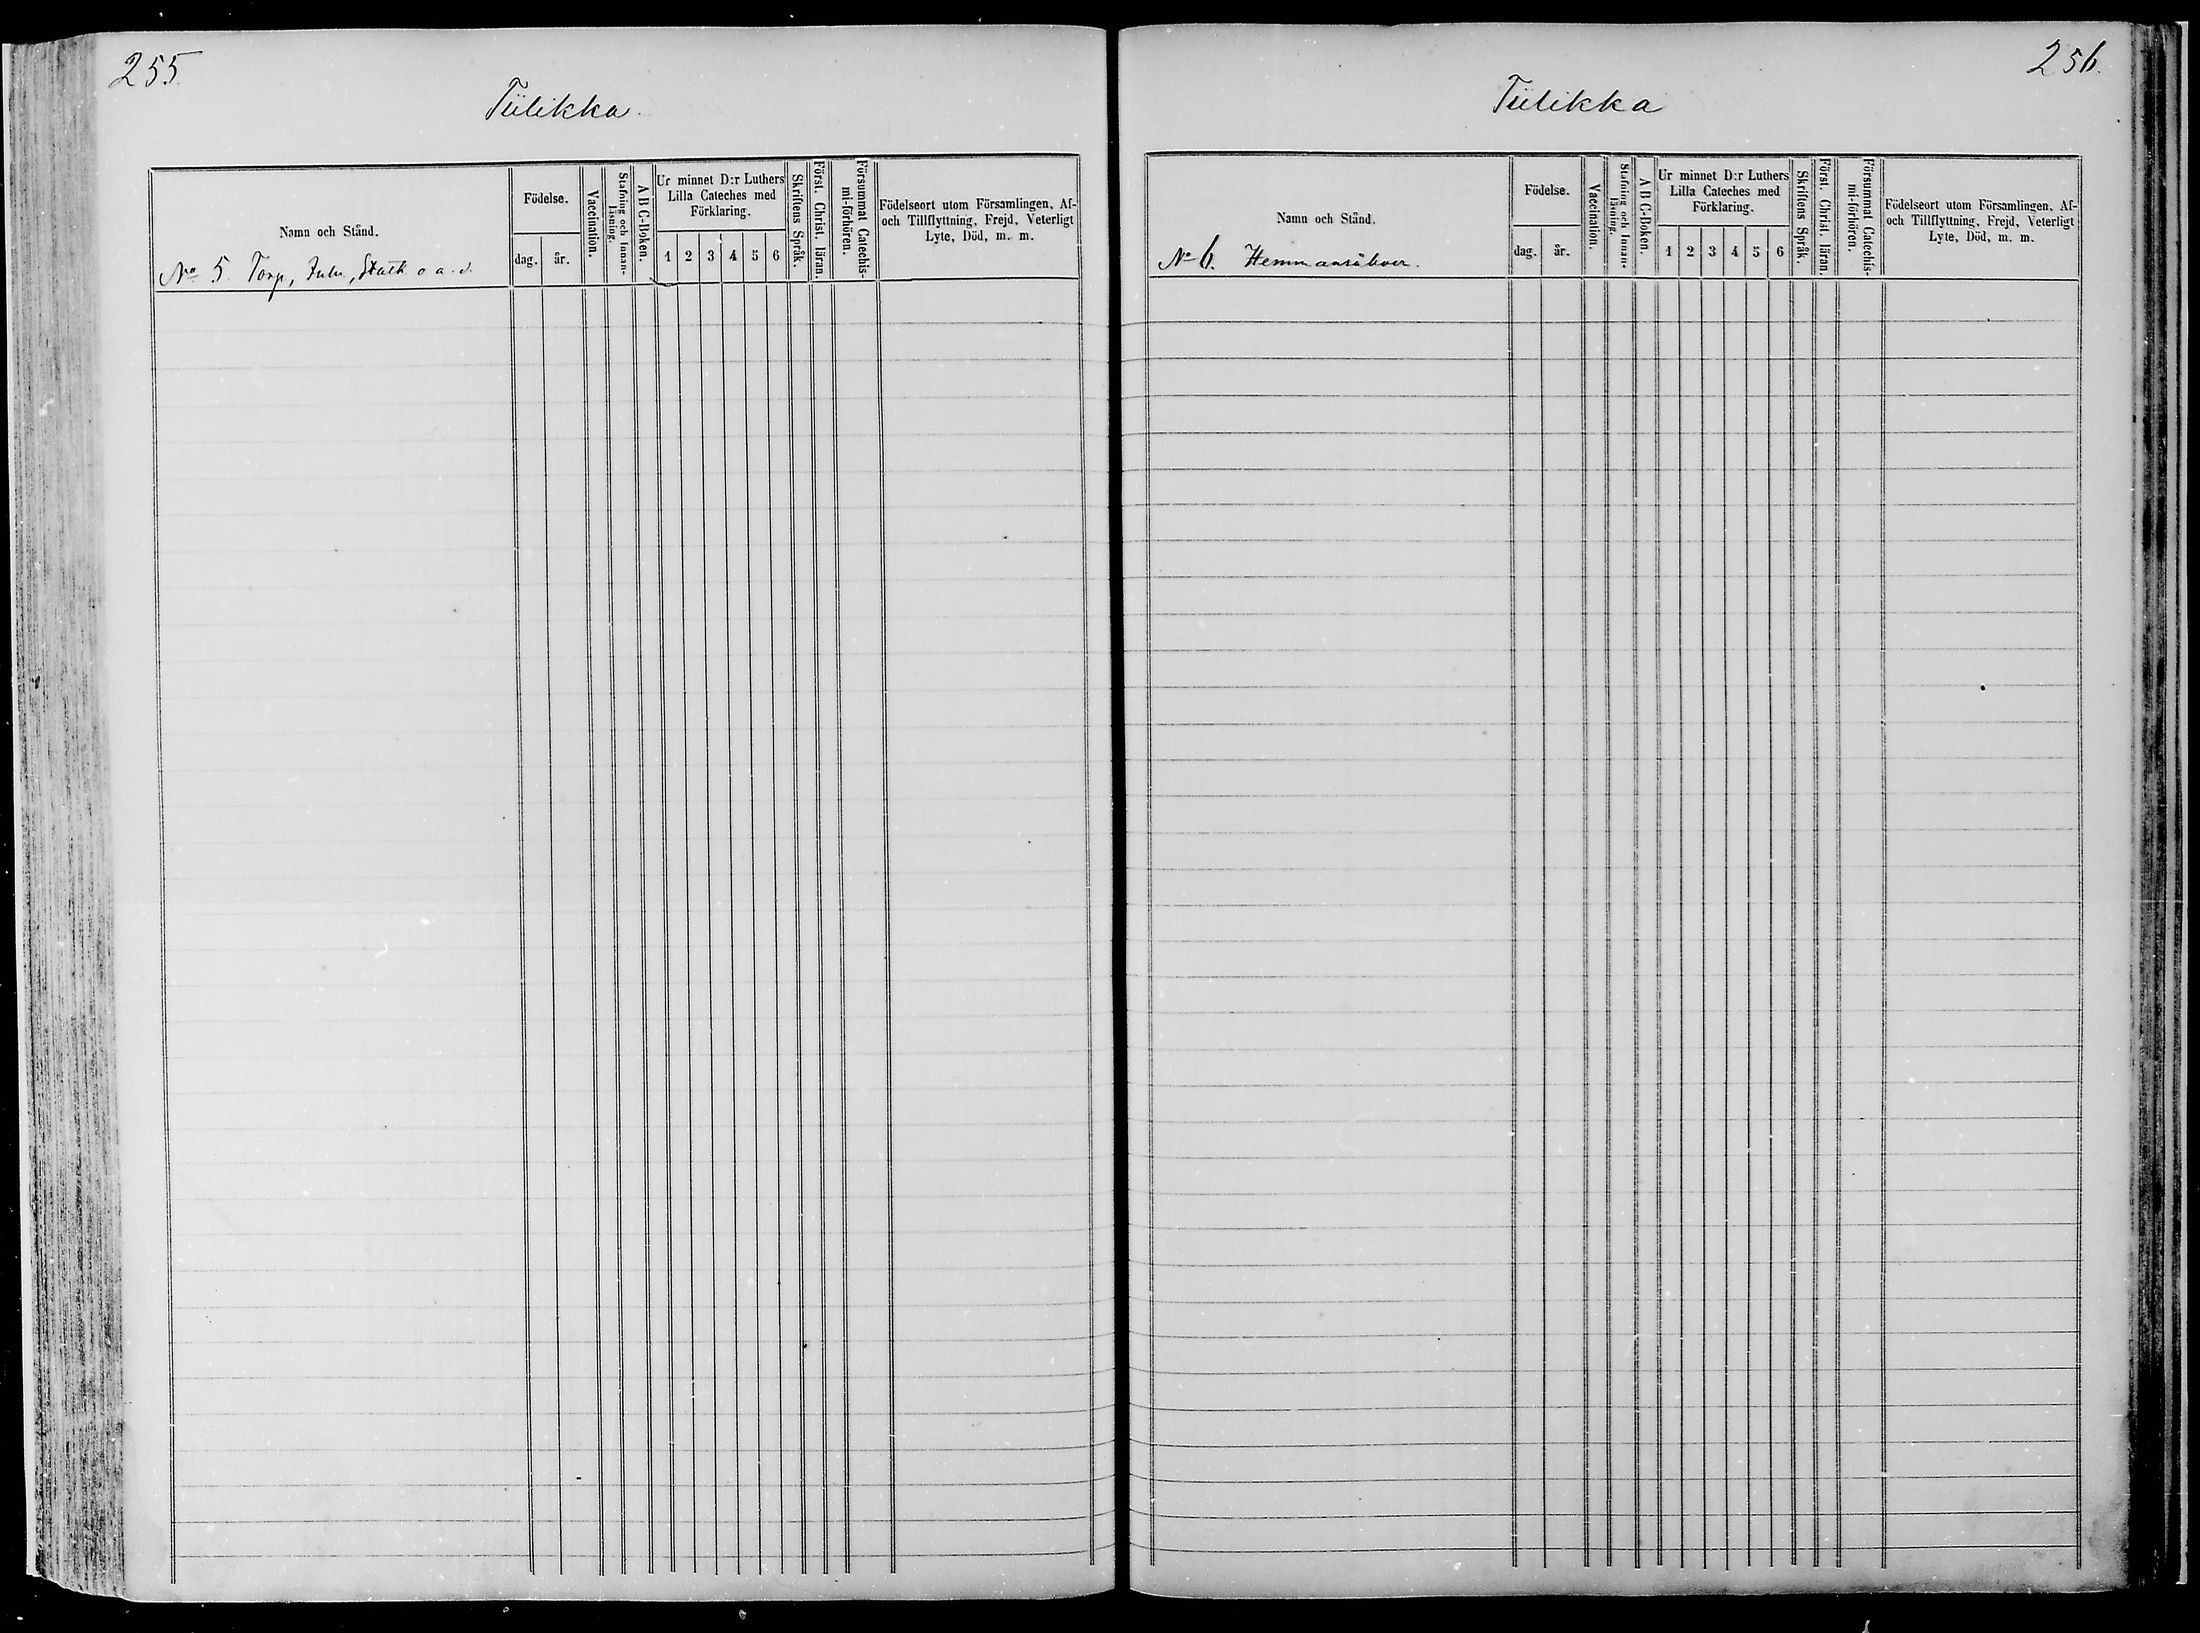 255.
Tiilikka.
Namn och Stånd.
No 5. Torp, Inh, Stath o a. d.
Födelse.
dag.
år.
Vaccination.
Stafning och Innan-
läsning.
A B C-Boken.
Ur minnet D:r Luthers
Lilla Cateches med
Förklaring.
1 2 3 4 5 6
Skriftens Språk.
Först. Christ. läran.
Försummat Catechis-
mi-förhören.
Födelseort utom Församlingen, Af-
och Tillflyttning, Frejd, Veterligt
Lyte, Död, m. m.
256.
Tiilikka
Namn och Stånd.
No 6. Hemmansåboer.
Födelse.
dag.
år.
Vaccination.
Stafning och Innan-
läsning.
A B C-Boken.
Ur minnet D:r Luthers
Lilla Cateches med
Förklaring.
1 2 3 4 5 6
Skriftens Språk.
Först. Christ. läran.
Försummat Catechis-
mi-förhören.
Födelseort utom Församlingen, Af-
och Tillflyttning, Frejd, Veterligt
Lyte, Död, m. m.